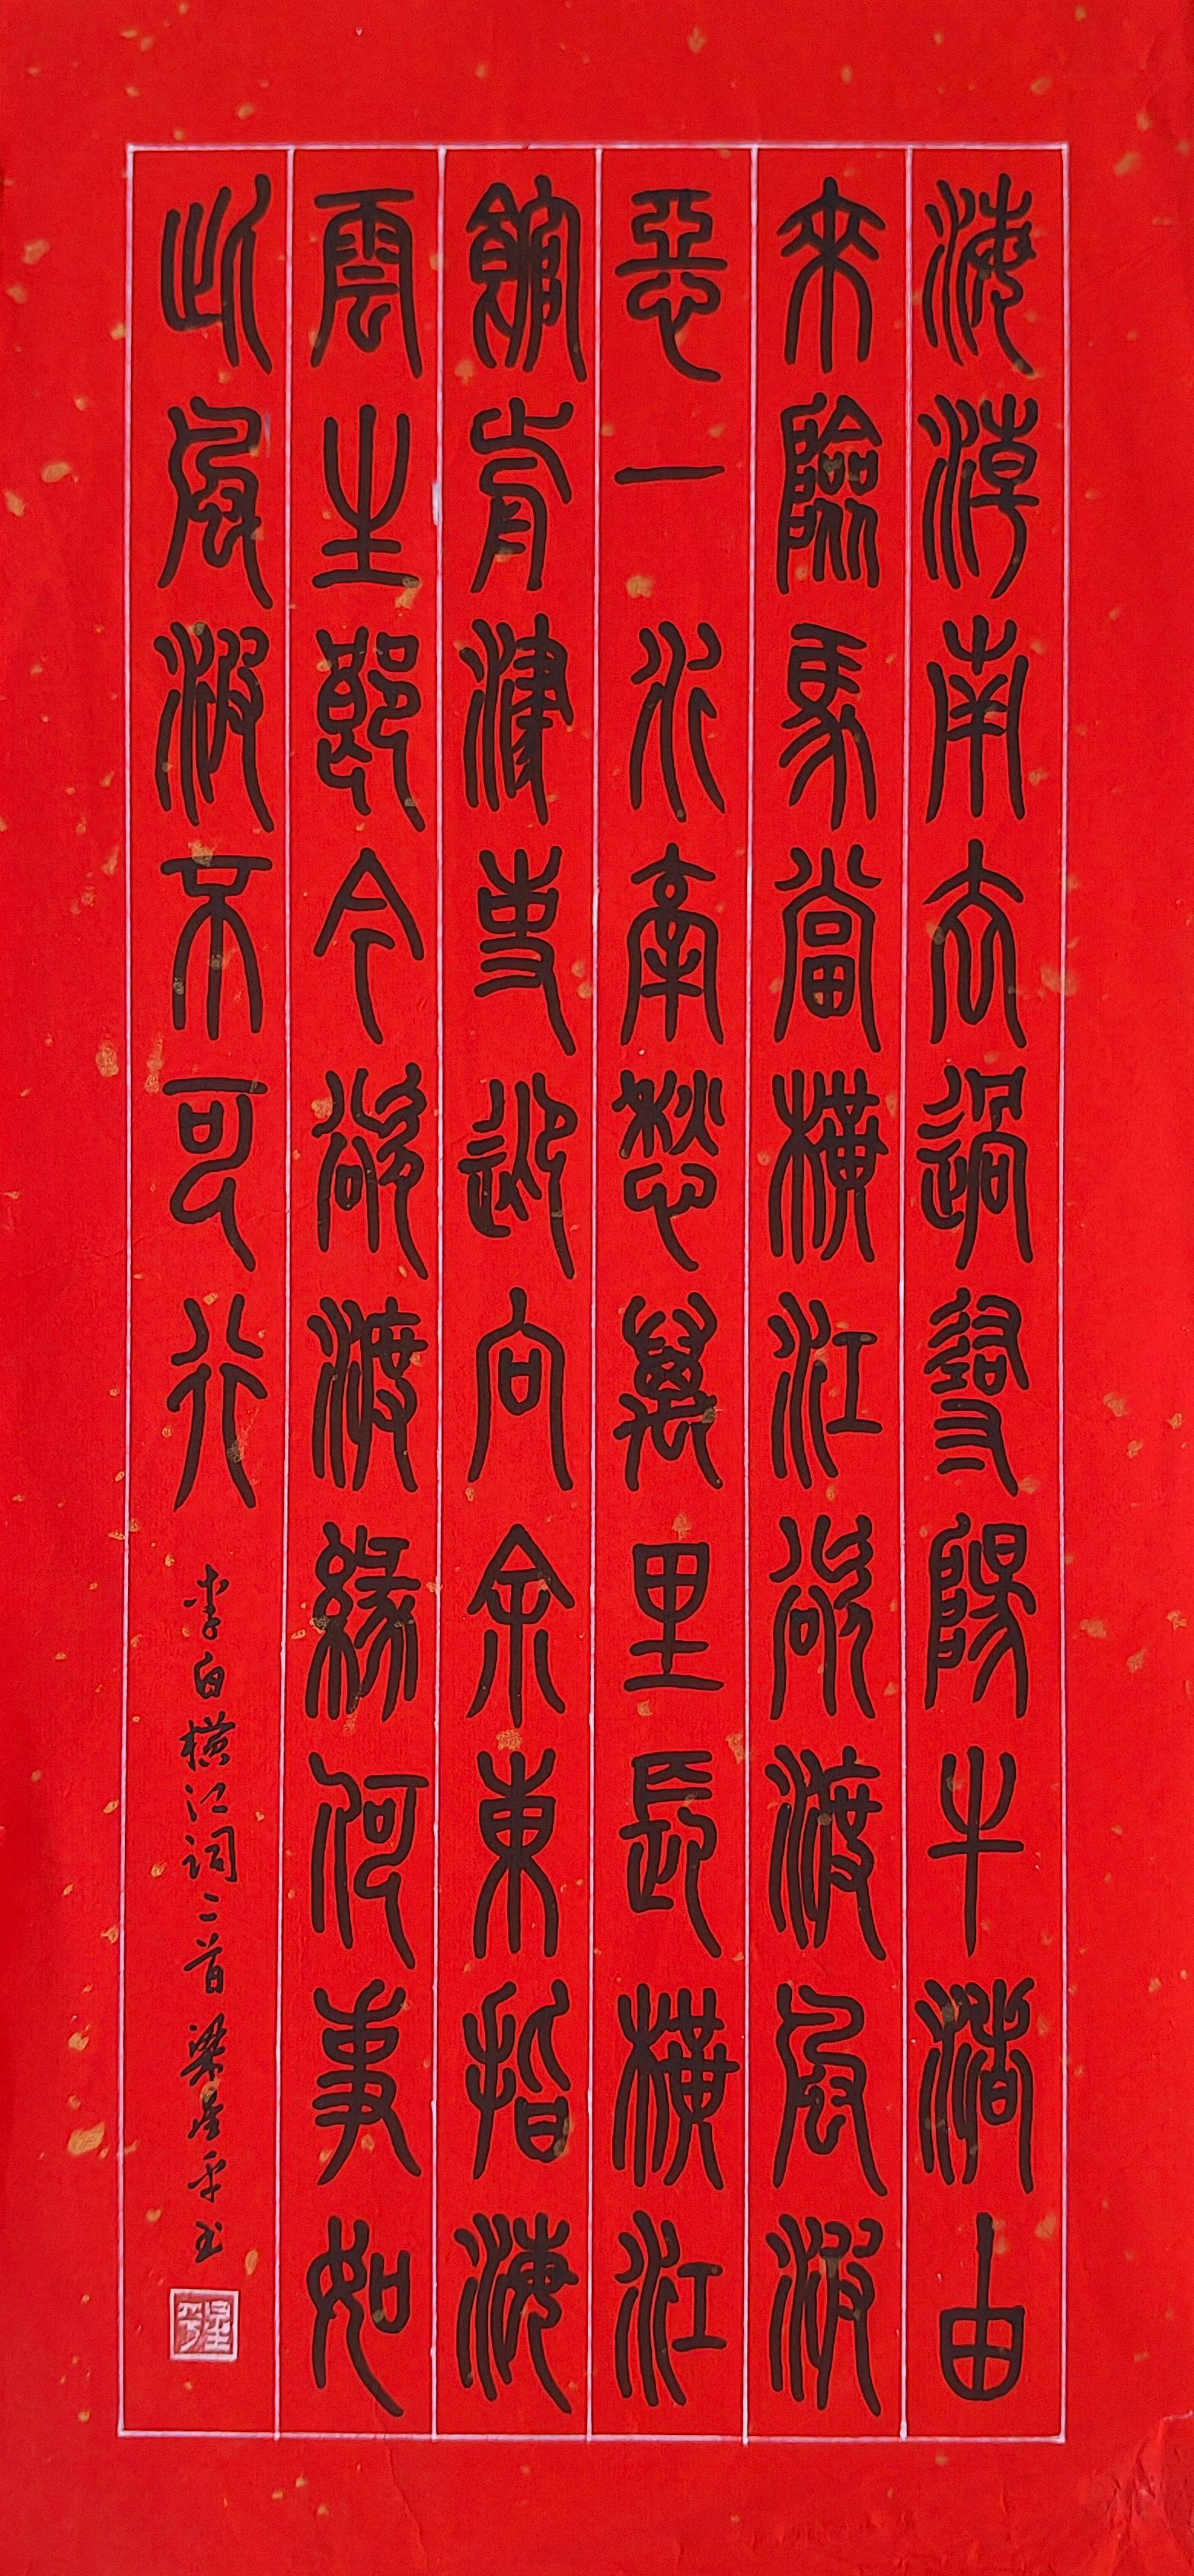 海潮南去過尋陽牛渚由
來險馬當橫江欲渡風波
惡一水牽愁萬里長橫江
館前津吏迎向余東指海
雲生郎今欲渡緣何事如
此風波不可行
李白横江词二首 梁星平书